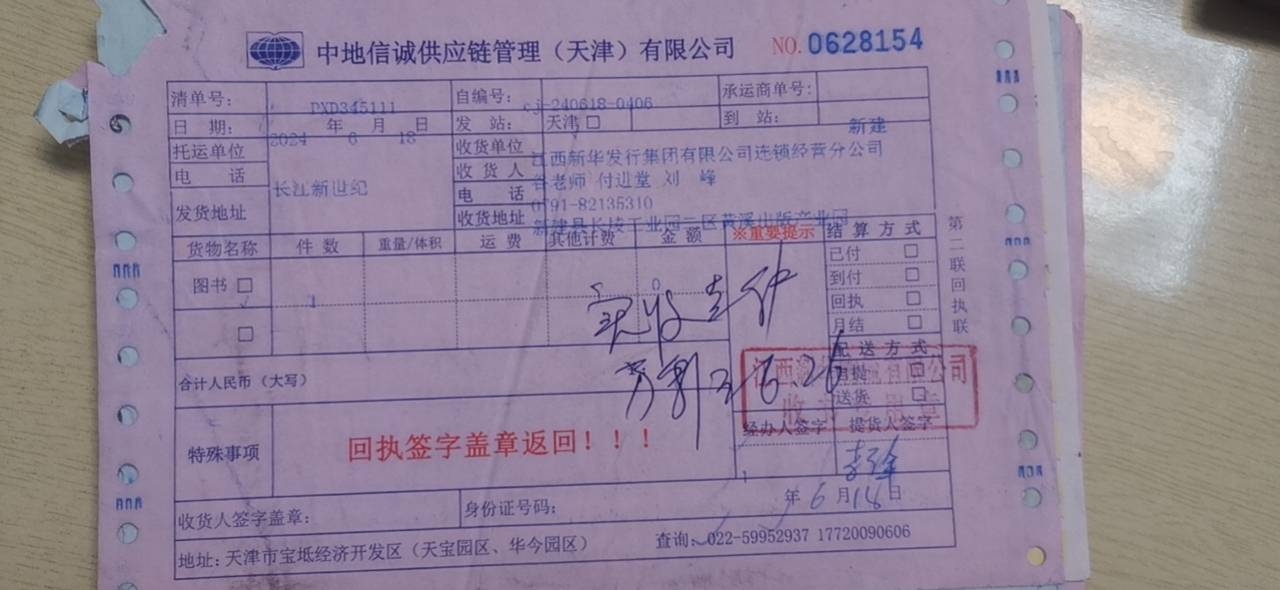 中地信诚供应链管理（天津）有限公司 NO.0628154
清单号： PXD345111 自编号： cj-240618-0406 承运商单号：
日 期： 2024 年 6 月 18 日 发 站： 天津□ 到 站： 新建
托运单位 长江新世纪 收货单位 江西新华发行集团有限公司连锁经营分公司
电 话 收 货 人 谷老师 付进堂 刘 峰
电 话 0791-82135310
发货地址 收货地址 新建县长堎工业园二区黄溪出版产业园
货物名称 件 数 重量/体积 运 费 其他计费 金 额 ※重要提示 结 算 方 式
图书 □ 1 0 已付 □
到付 □
□ 回执 □
月结 □
实收 件
配 送 方 式
合计人民币（大写） 自提 □
送货 □
特殊事项 回执签字盖章返回！！！ 经办人签字 提货人签字
年 6 月 18 日
收货人签字盖章： 身份证号码：
地址：天津市宝坻经济开发区（天宝园区、华今园区） 查询：022-59952937 17720090606
第二联回执联